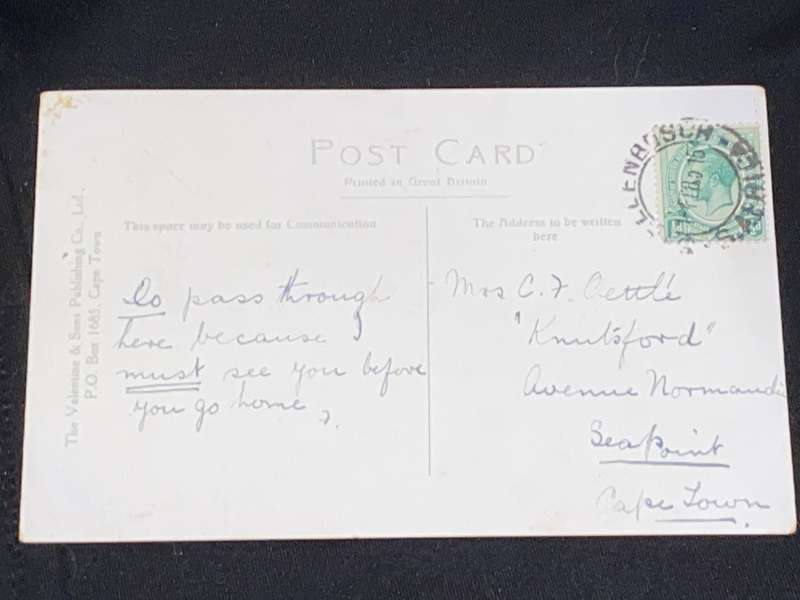 POST CARD
Printed in Great Britain
This space may be used for Communication
The Address to be written
here
The Valentine & Sons Publishing Co., Ltd.,
P.O. Box 1685, Cape Town
Do pass through
here because I
must see you before
you go home
Mrs C. F. Oettlé
"Knutsford"
Avenue Normandie
Sea Point
Cape Town